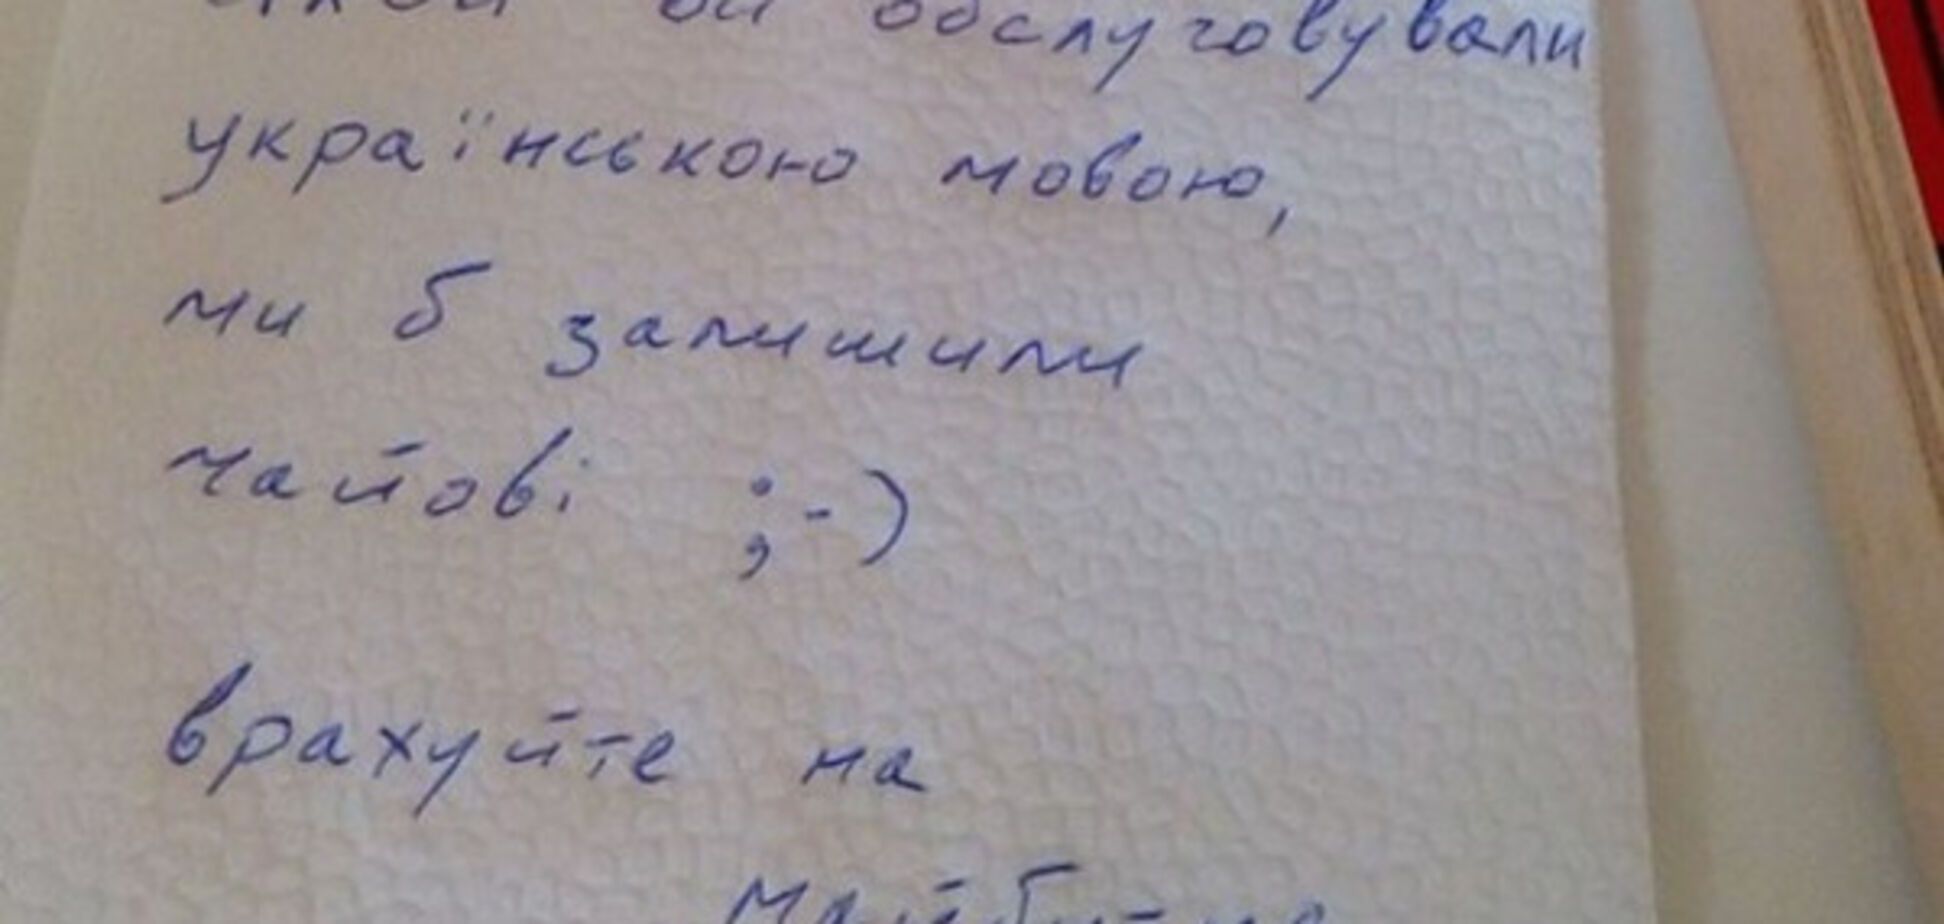 Якби ви обслуговували
українською мовою,
ми б залишили
чайові ;-)
врахуйте на
майбутнє